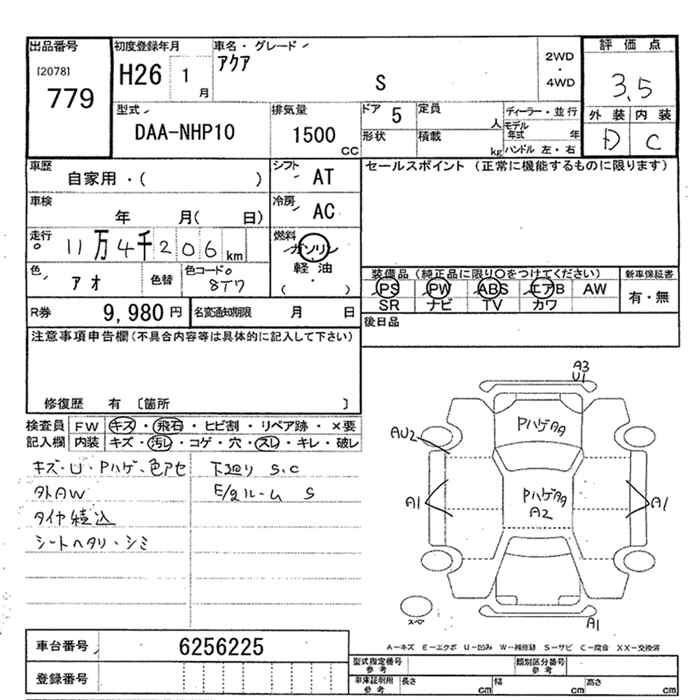 出品番号 初度登録年月 車名・グレード 評価点
[2078] H26 1 月 アクア 2WD・4WD 3.5
779 S 外装 内装
型式 排気量 ドア 5 定員 人 ディーラー・並行 D C
DAA-NHP10 1500 CC 形状 積載 kg モデル年式 年
ハンドル 左・右
車歴 シフト セールスポイント (正常に機能するものに限ります)
自家用・( ) AT
車検 冷房
年 月( 日) AC
走行 燃料
11万4千206km ガソリン
軽油
( )
色 アオ 色替 色コード 8T7 装備品(純正品に限り○をつけてください) 新車保証書
PS PW ABS エアB AW 有・無
SR ナビ TV カワ
R券 9,980円 名変通知期限 月 日 後日品
注意事項申告欄(不具合内容等は具体的に記入して下さい)
修復歴 有 〔箇所 〕
検査員 FW キズ・飛石・ヒビ割・リペア跡・×要
記入欄 内装 キズ・汚レ・コゲ・穴・スレ・キレ・破レ
キズ・U・Pハゲ・色アセ 下廻り S.C
外AW E/gルーム S
タイヤ積込
シートヘタリ・シミ
A3
U1
Pハゲタタ
AU2
A1
Pハゲタタ
A2
A1
スペア
A1
A-キズ E-エクボ U-凹み W-補修跡 S-サビ C-腐食 XX-交換済
車台番号 6256225
登録番号
型式指定番号 参考 類別区分番号 参考
車庫証明用 参考 長さ cm 幅 cm 高さ cm